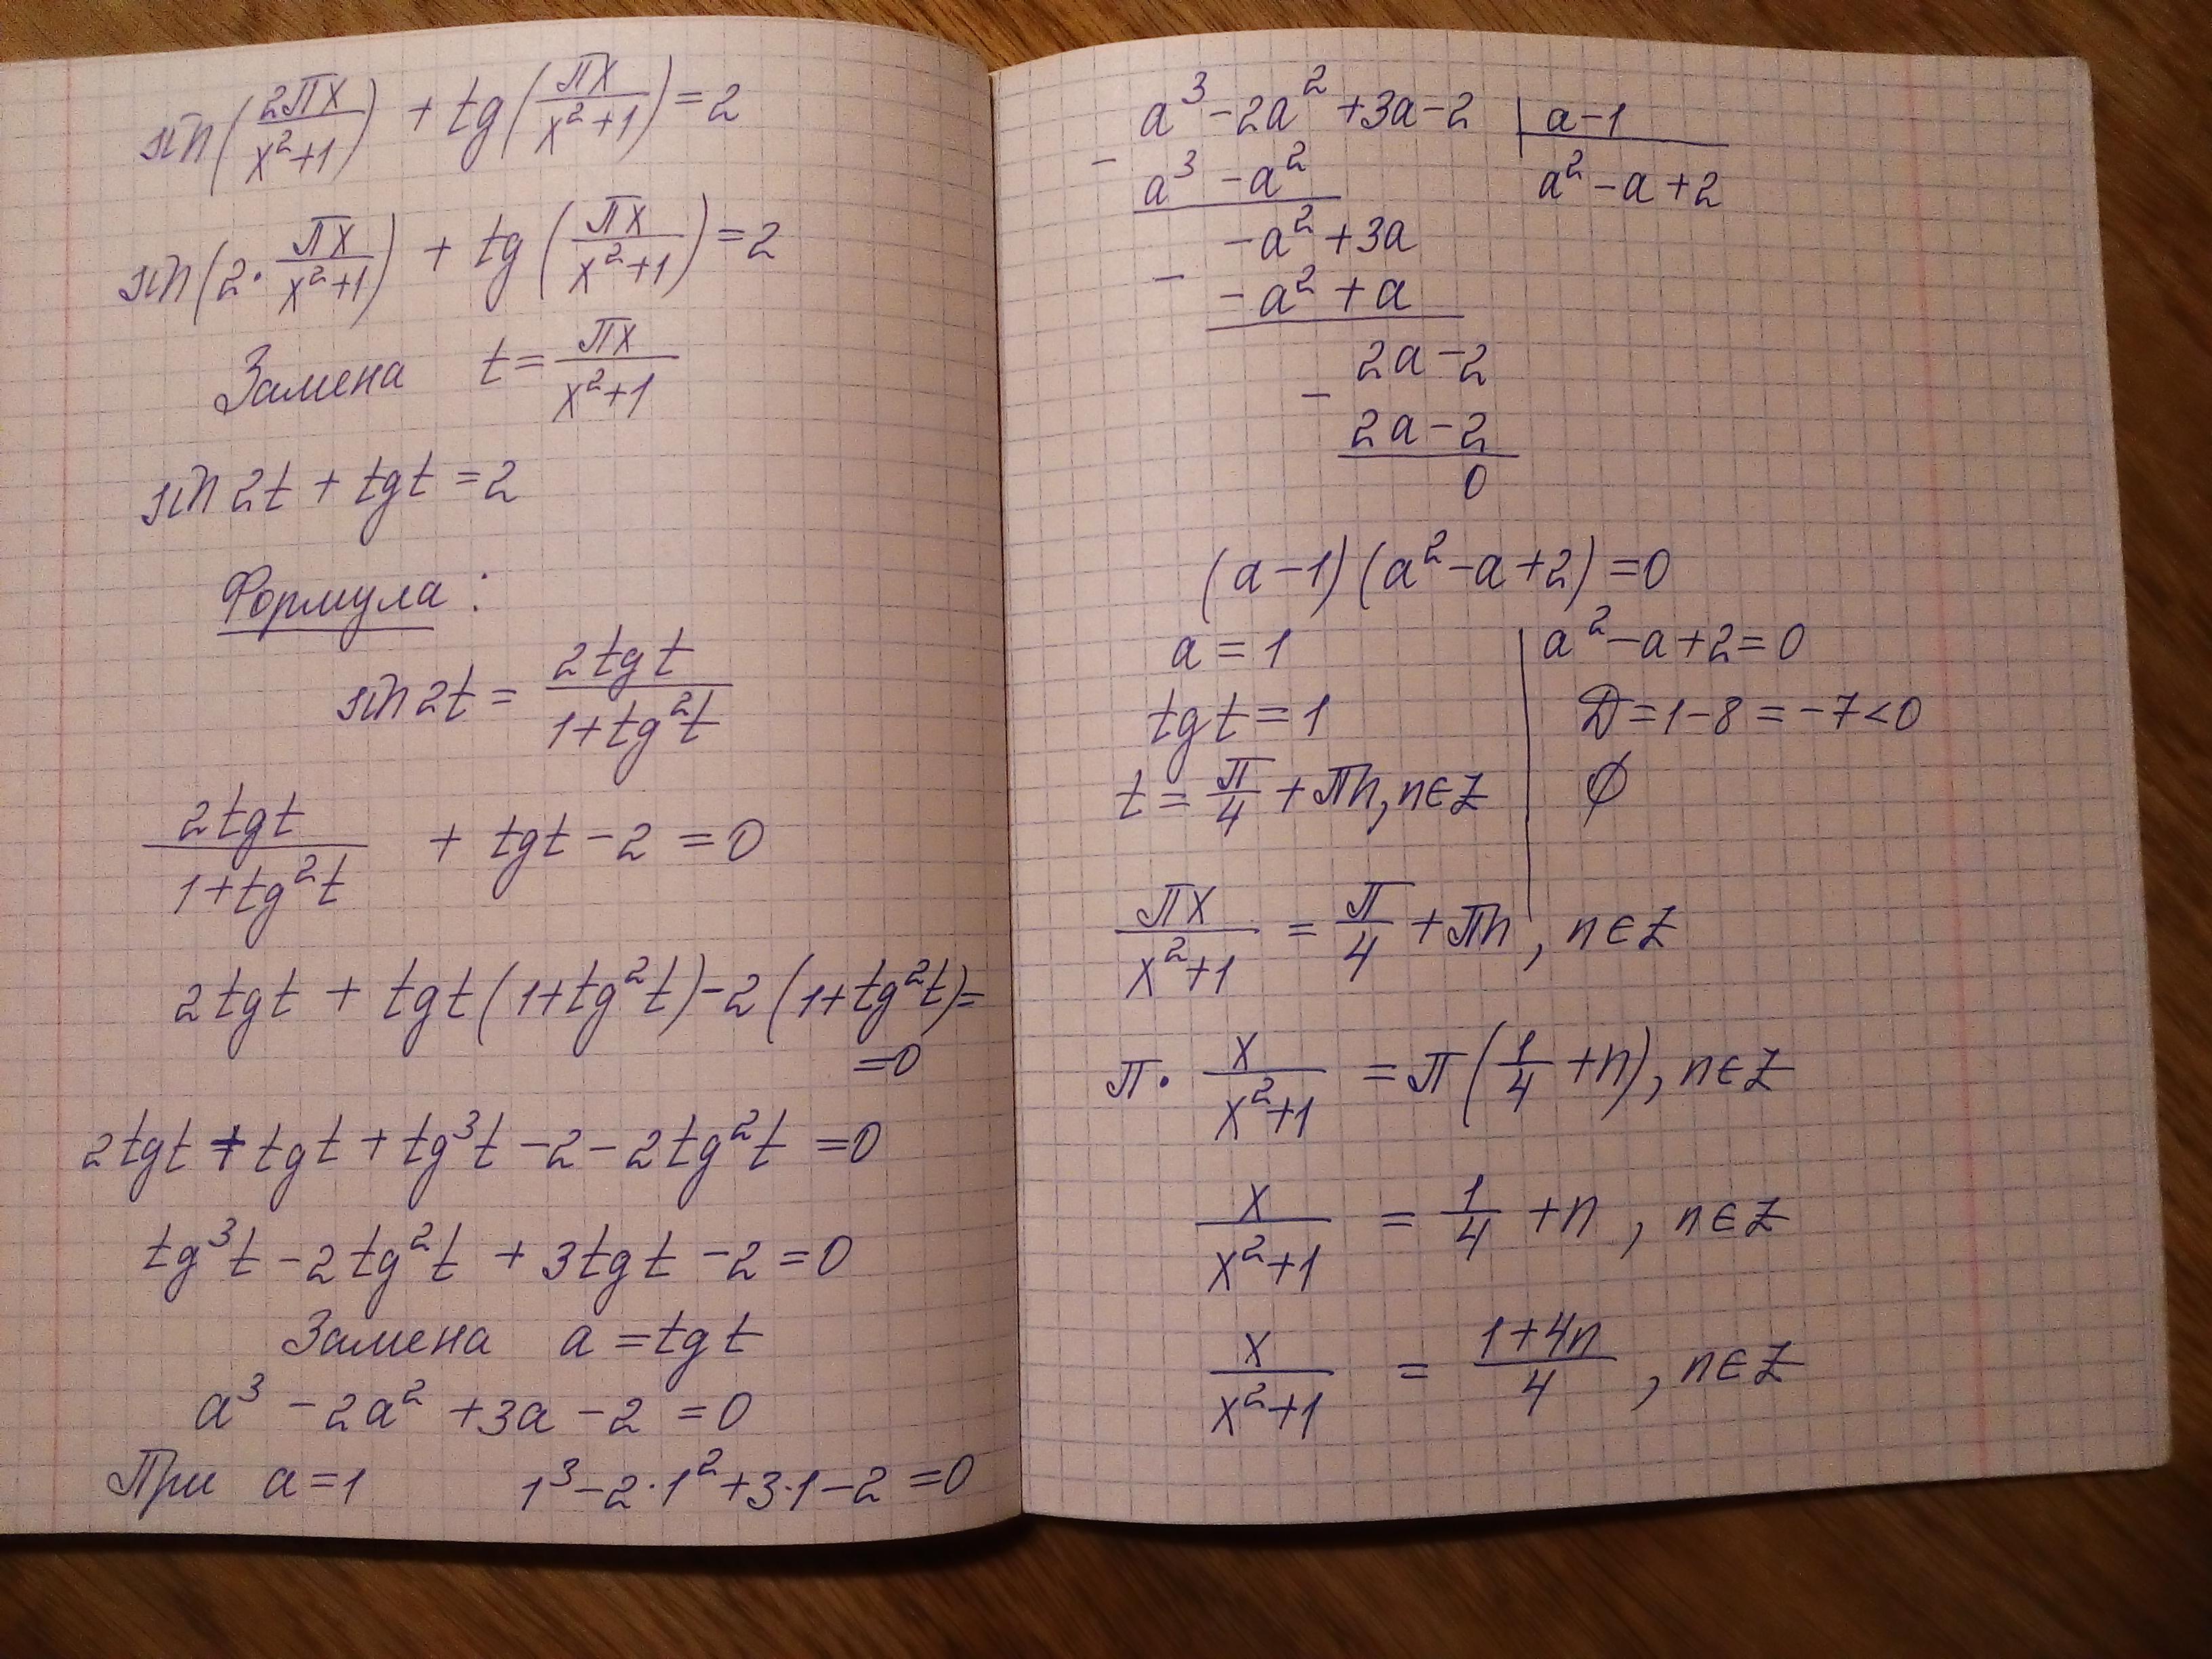 sin(2πx/(x²+1)) + tg(πx/(x²+1)) = 2
sin(2·πx/(x²+1)) + tg(πx/(x²+1)) = 2
Замена t = πx/(x²+1)
sin 2t + tg t = 2
Формула:
sin 2t = 2tg t/(1+tg²t)
2tg t/(1+tg²t) + tg t - 2 = 0
2tg t + tg t(1+tg²t) - 2(1+tg²t) =
= 0
2tg t + tg t + tg³t - 2 - 2tg²t = 0
tg³t - 2tg²t + 3tg t - 2 = 0
Замена a = tg t
a³ - 2a² + 3a - 2 = 0
При a = 1 1³ - 2·1² + 3·1 - 2 = 0
a³ - 2a² + 3a - 2 | a - 1
- a³ - a² a² - a + 2
-a² + 3a
- -a² + a
2a - 2
- 2a - 2
0
(a - 1)(a² - a + 2) = 0
a = 1 | a² - a + 2 = 0
tg t = 1 | D = 1 - 8 = -7 < 0
t = π/4 + πn, n∈Z | ∅
πx/(x²+1) = π/4 + πn, n∈Z
π·x/(x²+1) = π(1/4 + n), n∈Z
x/(x²+1) = 1/4 + n, n∈Z
x/(x²+1) = (1+4n)/4, n∈Z